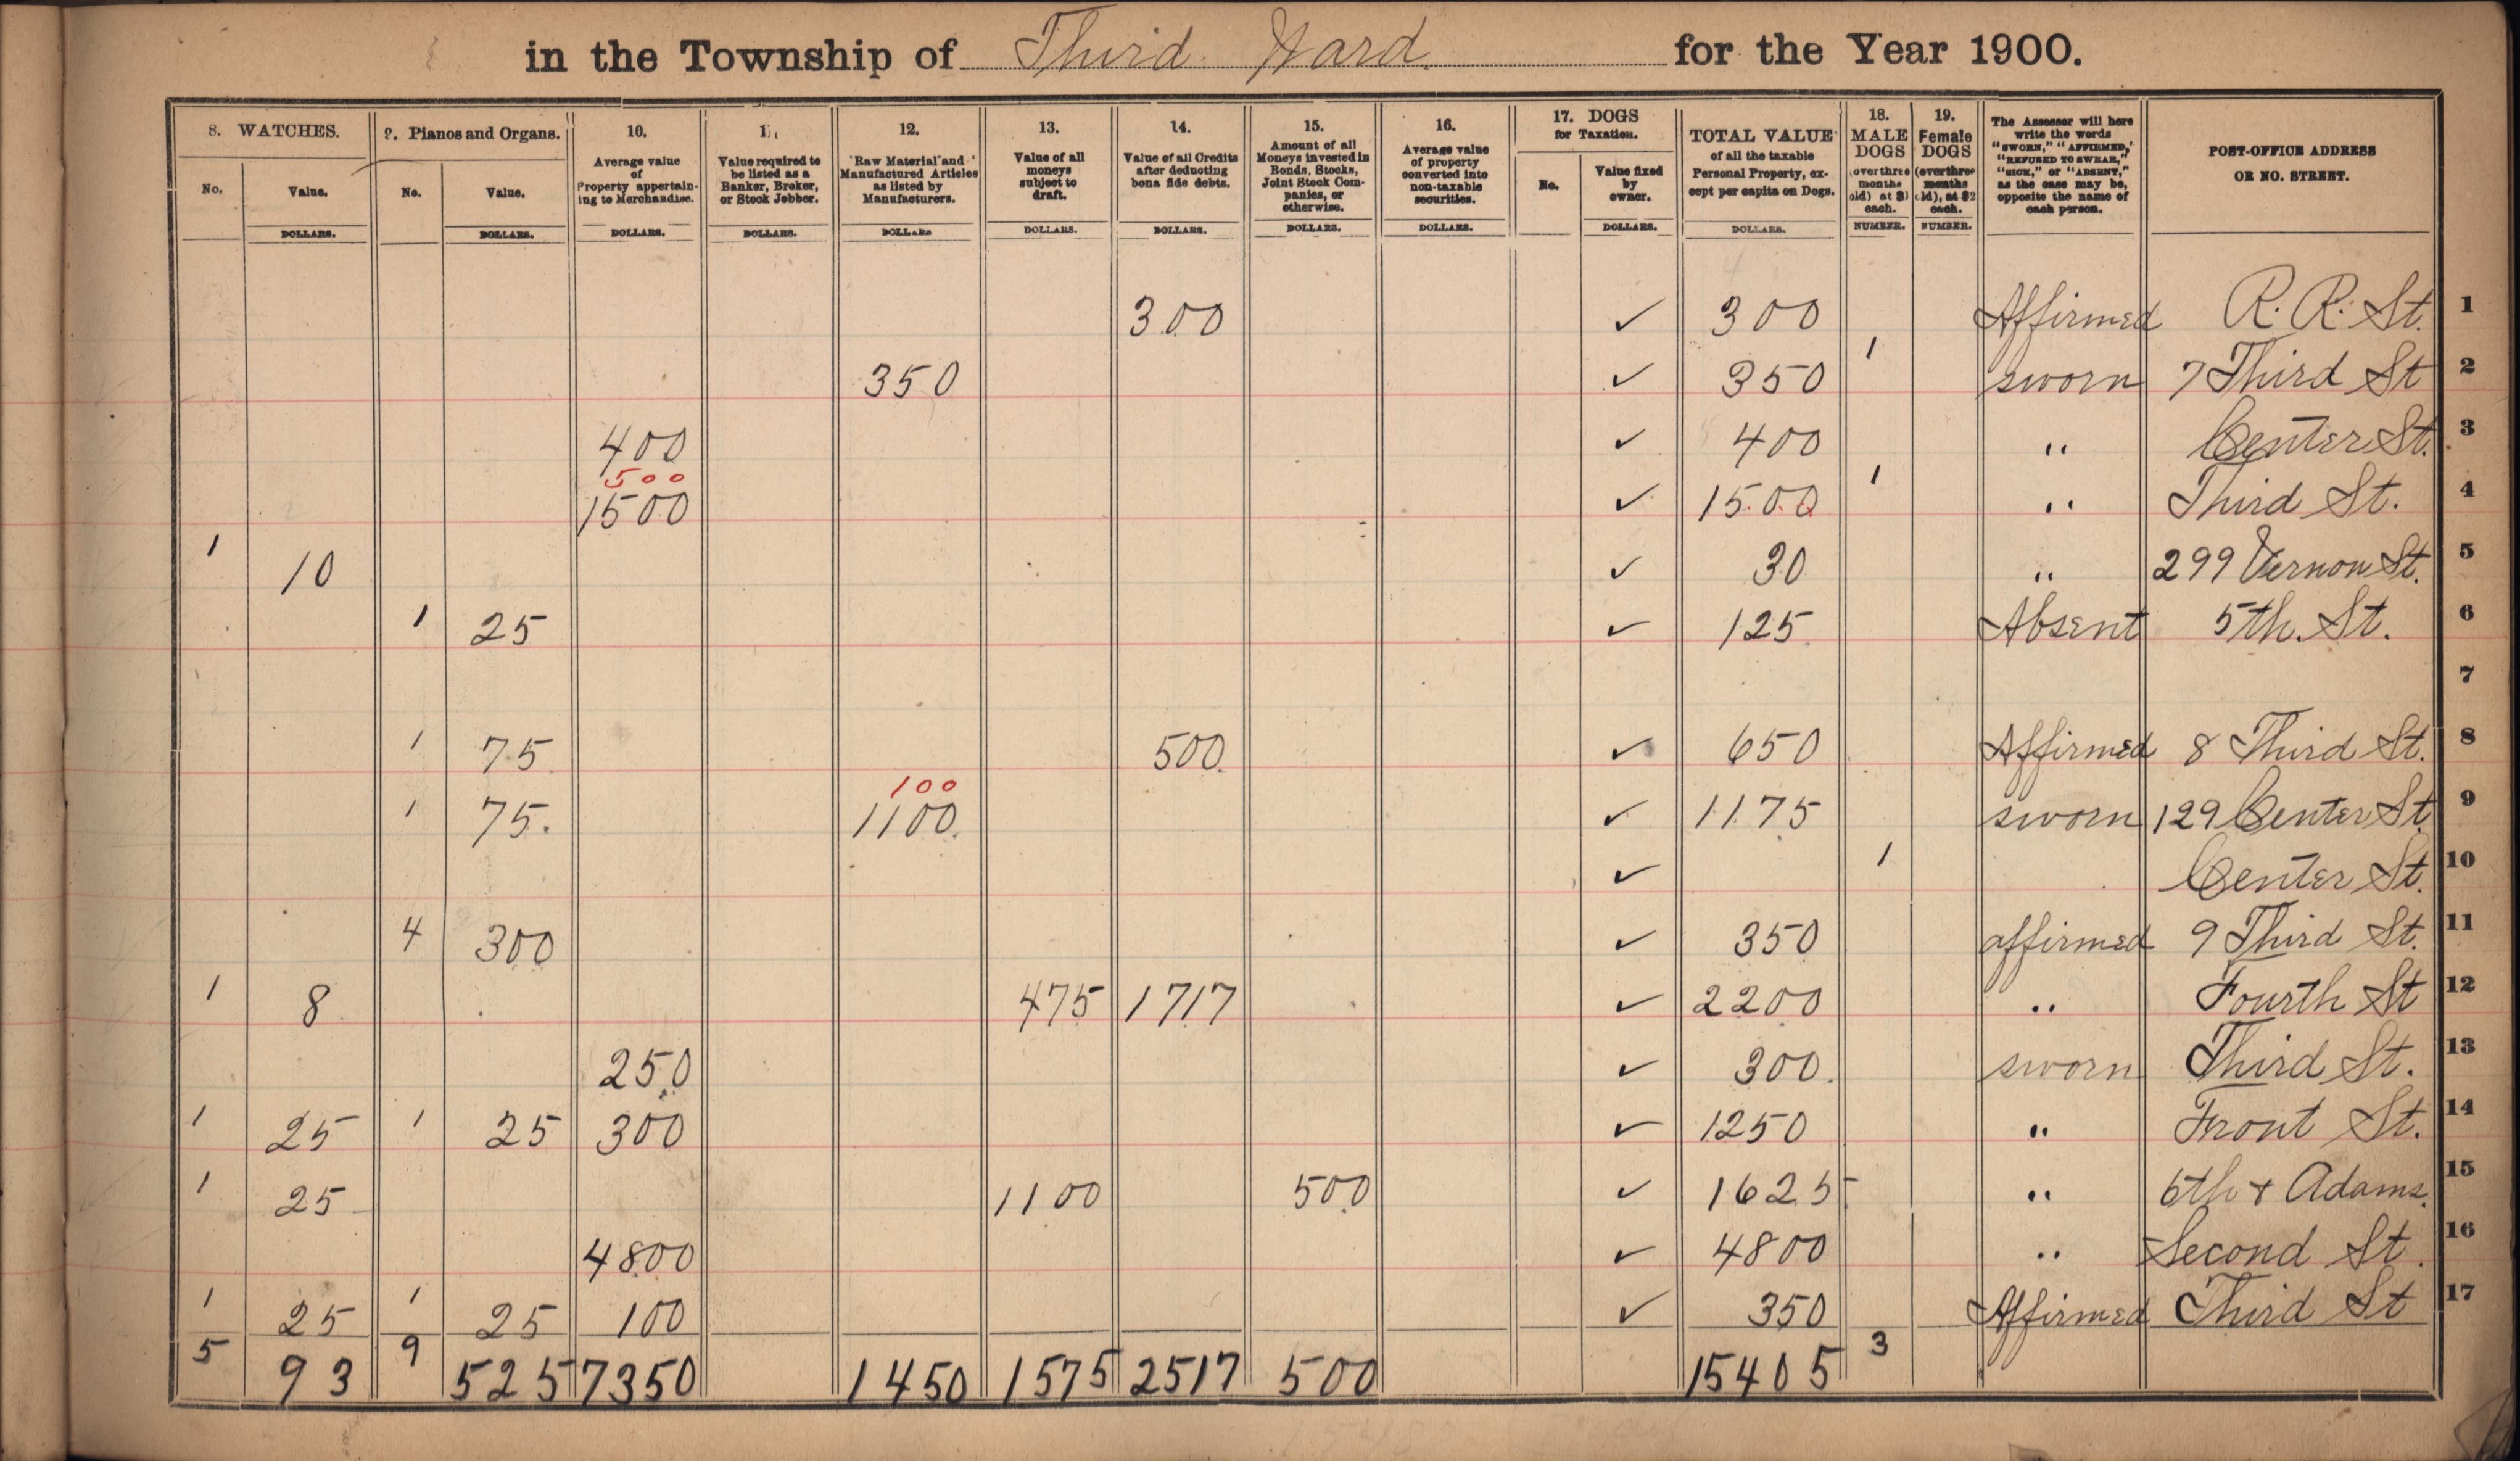 in the Township of Third Ward. for the Year 1900.
8. WATCHES. 9. Pianos and Organs. 10. 11. 12. 13. 14. 15. 16. 17. DOGS for Taxation. TOTAL VALUE 18. MALE DOGS 19. Female DOGS
No. Value. DOLLARS.
No. Value. DOLLARS.
Average value of Property appertaining to Merchandise. DOLLARS.
Value required to be listed as a Banker, Broker, or Stock Jobber. DOLLARS.
Raw Material and Manufactured Articles as listed by Manufacturers. DOLLARS
Value of all moneys subject to draft. DOLLARS.
Value of all Credits after deducting bona fide debts. DOLLARS.
Amount of all Moneys invested in Bonds, Stocks, Joint Stock Companies, or otherwise. DOLLARS.
Average value of property converted into non-taxable securities. DOLLARS.
No. Value fixed by owner. DOLLARS.
of all the taxable Personal Property, except per capita on Dogs. DOLLARS.
(over three months old) at $1 each. NUMBER.
(over three months old), at $2 each. NUMBER.
The Assessor will here write the words "SWORN," "AFFIRMED," "REFUSED TO SWEAR," "SICK," or "ABSENT," as the case may be, opposite the name of each person.
POST-OFFICE ADDRESS OR NO. STREET.
300 ✓ 300 Affirmed R. R. St. 1
350 ✓ 350 1 sworn 7 Third St 2
400 ✓ 400 " Center St. 3
500
1500 ✓ 1500 1 " Third St. 4
1 10 ✓ 30 " 299 Vernon St. 5
1 25 ✓ 125 Absent 5th. St. 6
7
1 75 500 ✓ 650 Affirmed 8 Third St. 8
100
1 75. 1100. ✓ 1175 sworn 129 Center St. 9
✓ 1 Center St. 10
4 300 ✓ 350 affirmed 9 Third St. 11
1 8 475 1717 ✓ 2200 " Fourth St 12
250 ✓ 300. sworn Third St. 13
1 25 1 25 300 ✓ 1250 " Front St. 14
1 25 1100 500 ✓ 1625 " 6th + Adams. 15
4800 ✓ 4800 " Second St. 16
1 25 1 25 100 ✓ 350 Affirmed Third St 17
5 93 9 525 7350 1450 1575 2517 500 15405 3